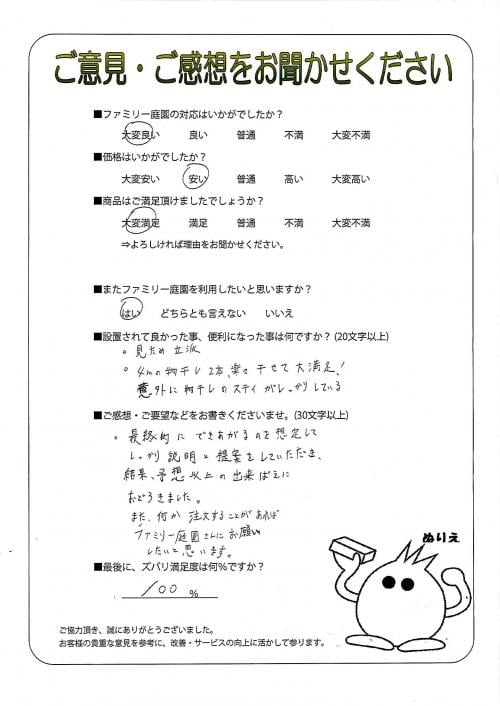 ご意見・ご感想をお聞かせください
■ファミリー庭園の対応はいかがでしたか？
大変良い 良い 普通 不満 大変不満
■価格はいかがでしたか？
大変安い 安い 普通 高い 大変高い
■商品はご満足頂けましたでしょうか？
大変満足 満足 普通 不満 大変不満
⇒よろしければ理由をお聞かせください。
■またファミリー庭園を利用したいと思いますか？
はい どちらとも言えない いいえ
■設置されて良かった事、便利になった事は何ですか？(20文字以上)
。見ため立派
。4mの物干し2本、楽々干せて大満足！
意外に物干しのステイがしっかりしている
■ご感想・ご要望などをお書きくださいませ。(30文字以上)
。最終的にできあがるのを想定して
しっかり説明と提案をしていただき、
結果、予想以上の出来ばえに
おどろきました。
また、何か注文することがあれば
ファミリー庭園さんにお願い
したいと思います。
■最後に、ズバリ満足度は何％ですか？
100 %
ぬりえ
ご協力頂き、誠にありがとうございました。
お客様の貴重な意見を参考に、改善・サービスの向上に活かして参ります。